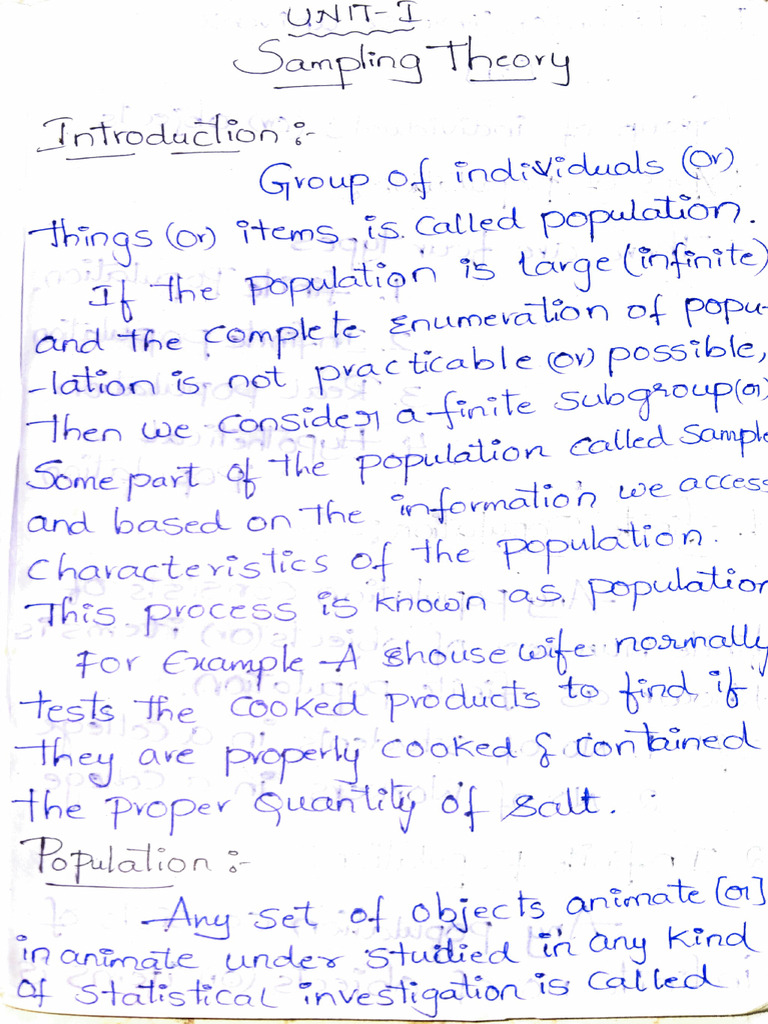 UNIT-I
Sampling Theory
Introduction :-
Group of individuals (or)
things (or) items is called population.
If the population is large (infinite)
and the complete enumeration of popu-
-lation is not practicable (or) possible,
then we consider a finite subgroup (or)
Some part of the population called sample
and based on the information we access
characteristics of the population.
This process is known as population
For Example A shouse wife normally
tests the cooked products to find if
they are properly cooked & contained
the proper quantity of salt.
Population :-
Any set of objects animate [or]
in animate under studied in any kind
of statistical investigation is called